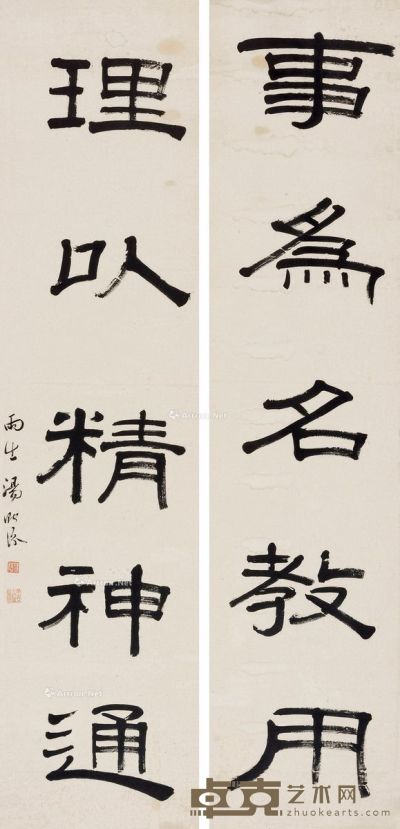 事為名教用
理以精神通
雨生湯貽汾
卓克艺术网
zhuokearts.com